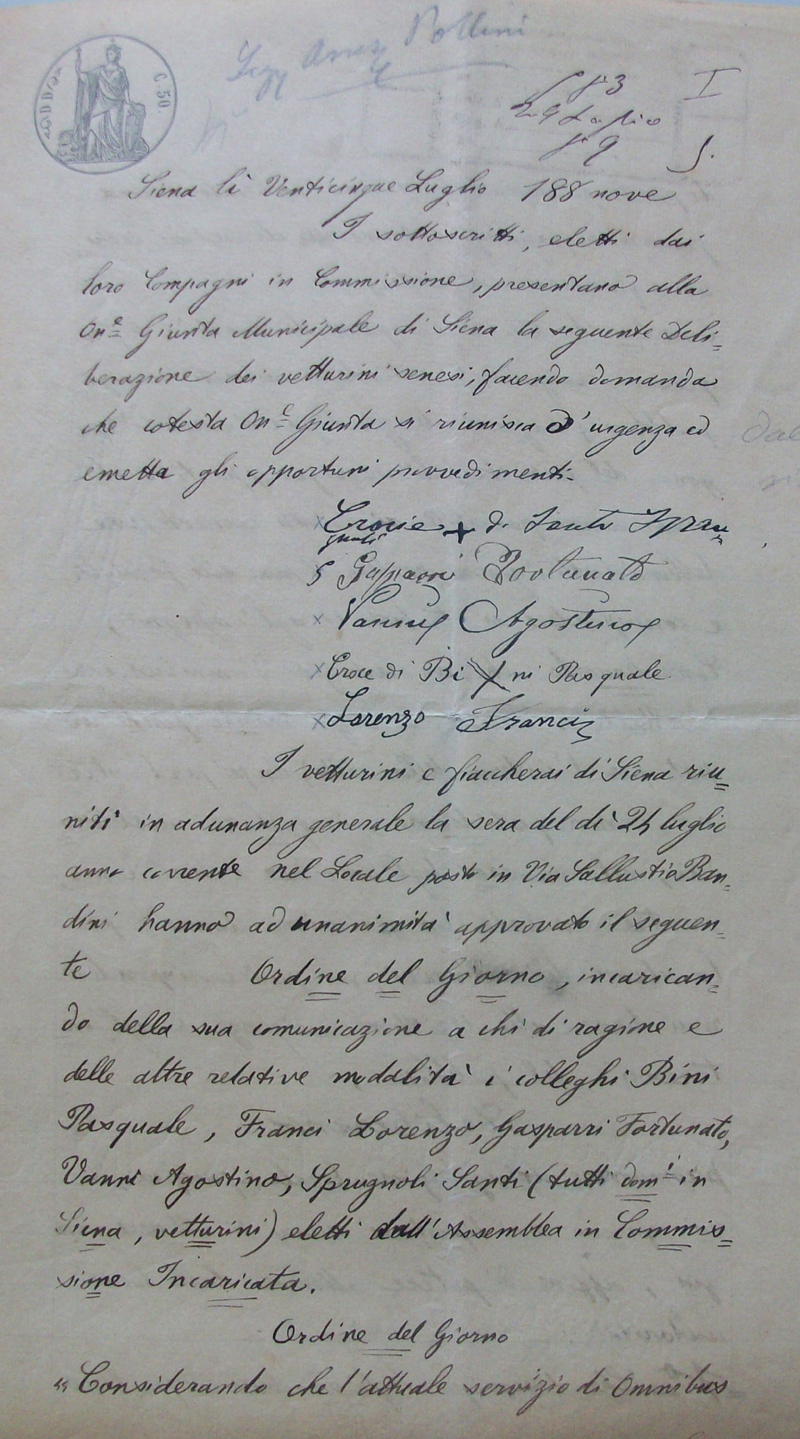 C. 50.
I
Siena lì Venticinque Luglio 188 nove
I sottoscritti, eletti dai
loro Compagni in Commissione, presentano alla
On.e Giunta Municipale di Siena la seguente Deli=
berazione dei vetturini senesi, facendo domanda
che cotesta On.e Giunta si riunisca d'urgenza ed
emetta gli opportuni provvedimenti.
Croce + di Santi Spru=
gnoli
Gasparri Fortunato
Vanni Agostino
Croce di Bi X ni Pasquale
Lorenzo Franci
I vetturini e fiaccherai di Siena riu=
niti in adunanza generale la sera del dì 24 luglio
anno corrente nel Locale posto in Via Sallustio Ban=
dini hanno ad unanimità approvato il seguen=
te Ordine del Giorno, incarican=
do della sua comunicazione a chi di ragione e
delle altre relative modalità i colleghi Bini
Pasquale, Franci Lorenzo, Gasparri Fortunato,
Vanni Agostino, Sprugnoli Santi (tutti dom.i in
Siena, vetturini) eletti dall'Assemblea in Commis=
sione Incaricata.
Ordine del Giorno
"Considerando che l'attuale servizio di Omnibus